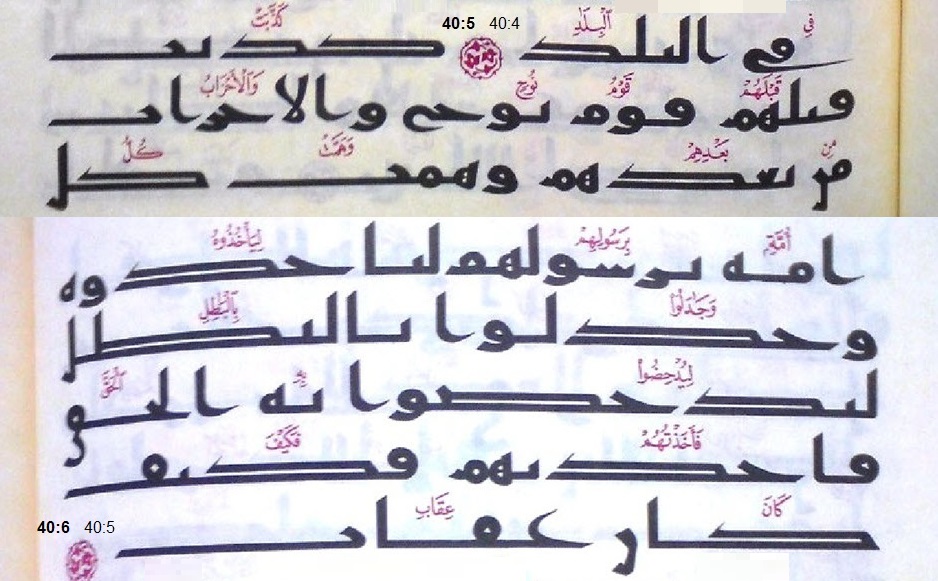 فِي ٱلْبِلَٰدِ 40:4 40:5 كَذَّبَتْ
في البلد كذبت
قَبْلَهُمْ قَوْمُ نُوحٍ وَٱلْأَحْزَابُ
قبلهم قوم نوح والاحزاب
مِنْ بَعْدِهِمْ وَهَمَّتْ كُلُّ
من بعدهم وهمت كل
أُمَّةٍ بِرَسُولِهِمْ لِيَأْخُذُوهُ
امه برسولهم لياخذوه
وَجَٰدَلُوا بِٱلْبَٰطِلِ
وجدلوا بالبطل
لِيُدْحِضُوا بِهِ ٱلْحَقَّ
ليدحضوا به الحق
فَأَخَذْتُهُمْ فَكَيْفَ
فاخذتهم فكيف
كَانَ عِقَابِ
كان عقاب
40:5 40:6